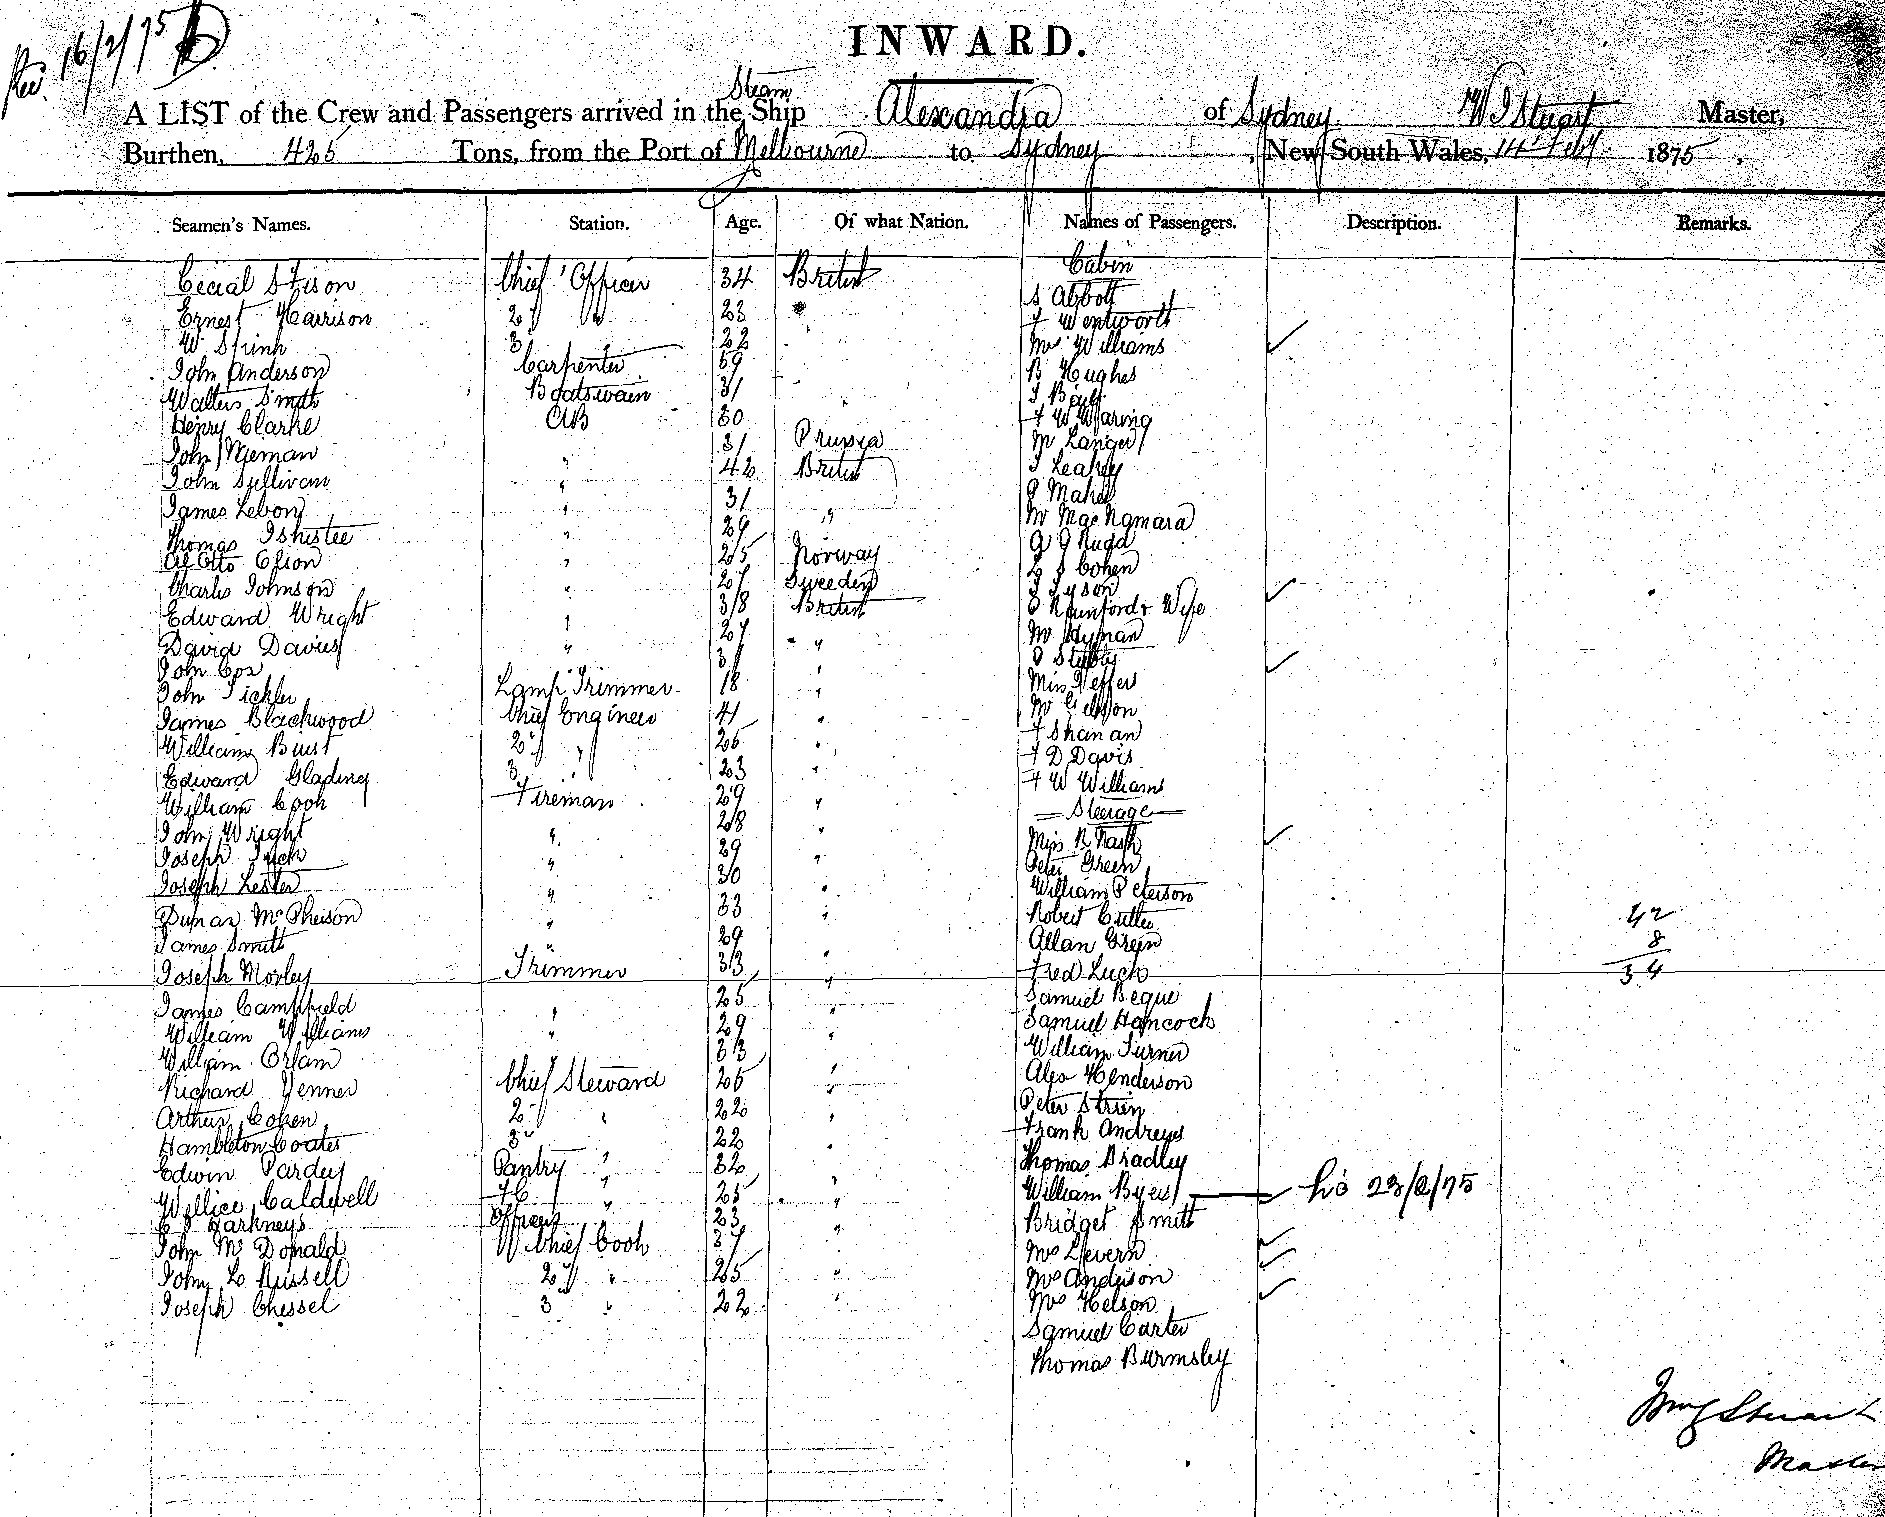 Rec. 16/2/75
INWARD.
A LIST of the Crew and Passengers arrived in the Steam Ship Alexandra of Sydney W J Stuart Master,
Burthen, 425 Tons, from the Port of Melbourne to Sydney, New South Wales, 14 Feby 1875,
Seamen's Names. Station. Age. Of what Nation. Names of Passengers. Description. Remarks.
Cabin
Cecial Stison Chief Officer 34 British S Abbott
Ernest Harrison 2d " 23 " F Wentworth
W 3 22 Mrs Williams
John Anderson Carpenter 59 B Hughes
Walters Smith Boatswain 31 J
Henry Clarke AB 30 F W Waring
John Nieman " 31 Prussia M Langer
John Sullivan " 42 British J Leahey
James Lebon " 31 Mahe
Thomas " 29 " Mr MacNamara
Otto Olson " 25 Norway
Charles Johnson " 27 Sweeden L S Cohen
Edward Wright " 38 British J Tyson
David Davies " 27 " & Wife
John Cox " 31 " Mr Hyman
John Tickler Lamp Trimmer 18 " Miss
James Blackwood Chief Engineer 41 " Mr
William Buist 2d " 26 " F Shanan
Edward Glading 3 " 23 " F D Davis
William Cook Fireman 29 " F W Williams
John Wright " 28 " — Steerage —
Joseph " 29 " Miss R Nash
Joseph Lester " 30 " Peter Green
Duncan McPherson " 33 " William Peterson
James Smith " 29 " Robert Cutler 42
Joseph Morley Trimmer 33 " Allan Green 8
James Campfield " 25 " Fred Luck 34
William Williams " 29 " Samuel Beque
William Orlam 33 " Samuel Hancock
Richard Venner Chief Steward 26 " William Turner
Arthur Cohen 2d " 22 " Alex Henderson
Hambleton Coates 3 22 " Peter
Edwin Pardey Pantry " 32 " Frank Andrews
Wallice Caldwell FC " 25 " Thomas Bradley
Harkneys Officers 23 " William Byers 23/2/75
John McDonald Chief Cook 37 " Bridget Smith
John L Russell 2d " 25 " Mrs Levern
Joseph Chessel 3 " 22 " Mrs Anderson
Mrs Nelson
Samuel Carter
Thomas Burmsley
Wm J Stuart
Master